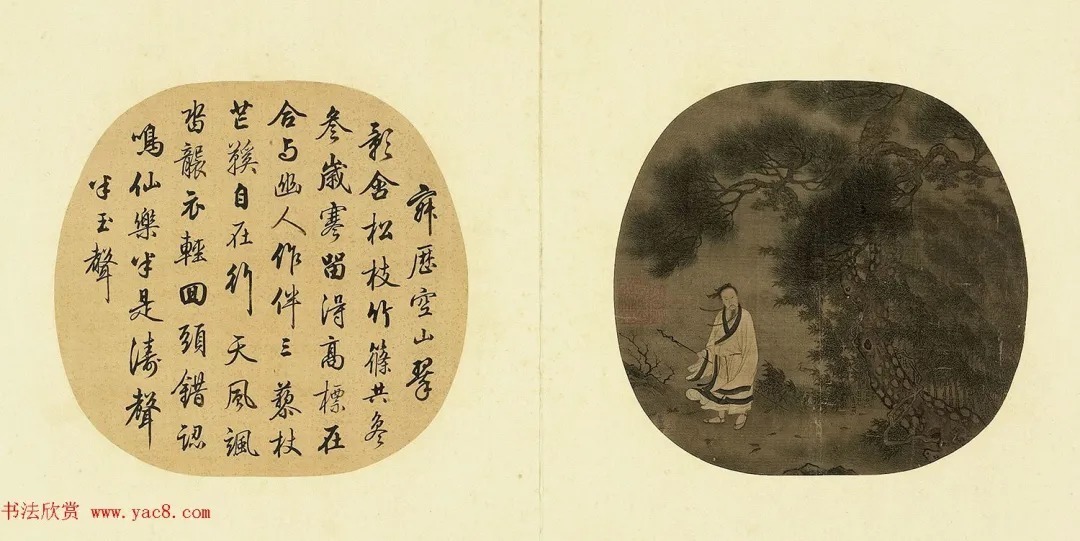 寂歷空山翠
影含松枝竹篠共
叅歲寒留得高標在
合與幽人作伴三藜杖
芒鞵自在行天風颯
沓襲衣輕回頭錯認
鳴仙樂半是濤聲
半玉聲
书法欣赏 www.yac8.com